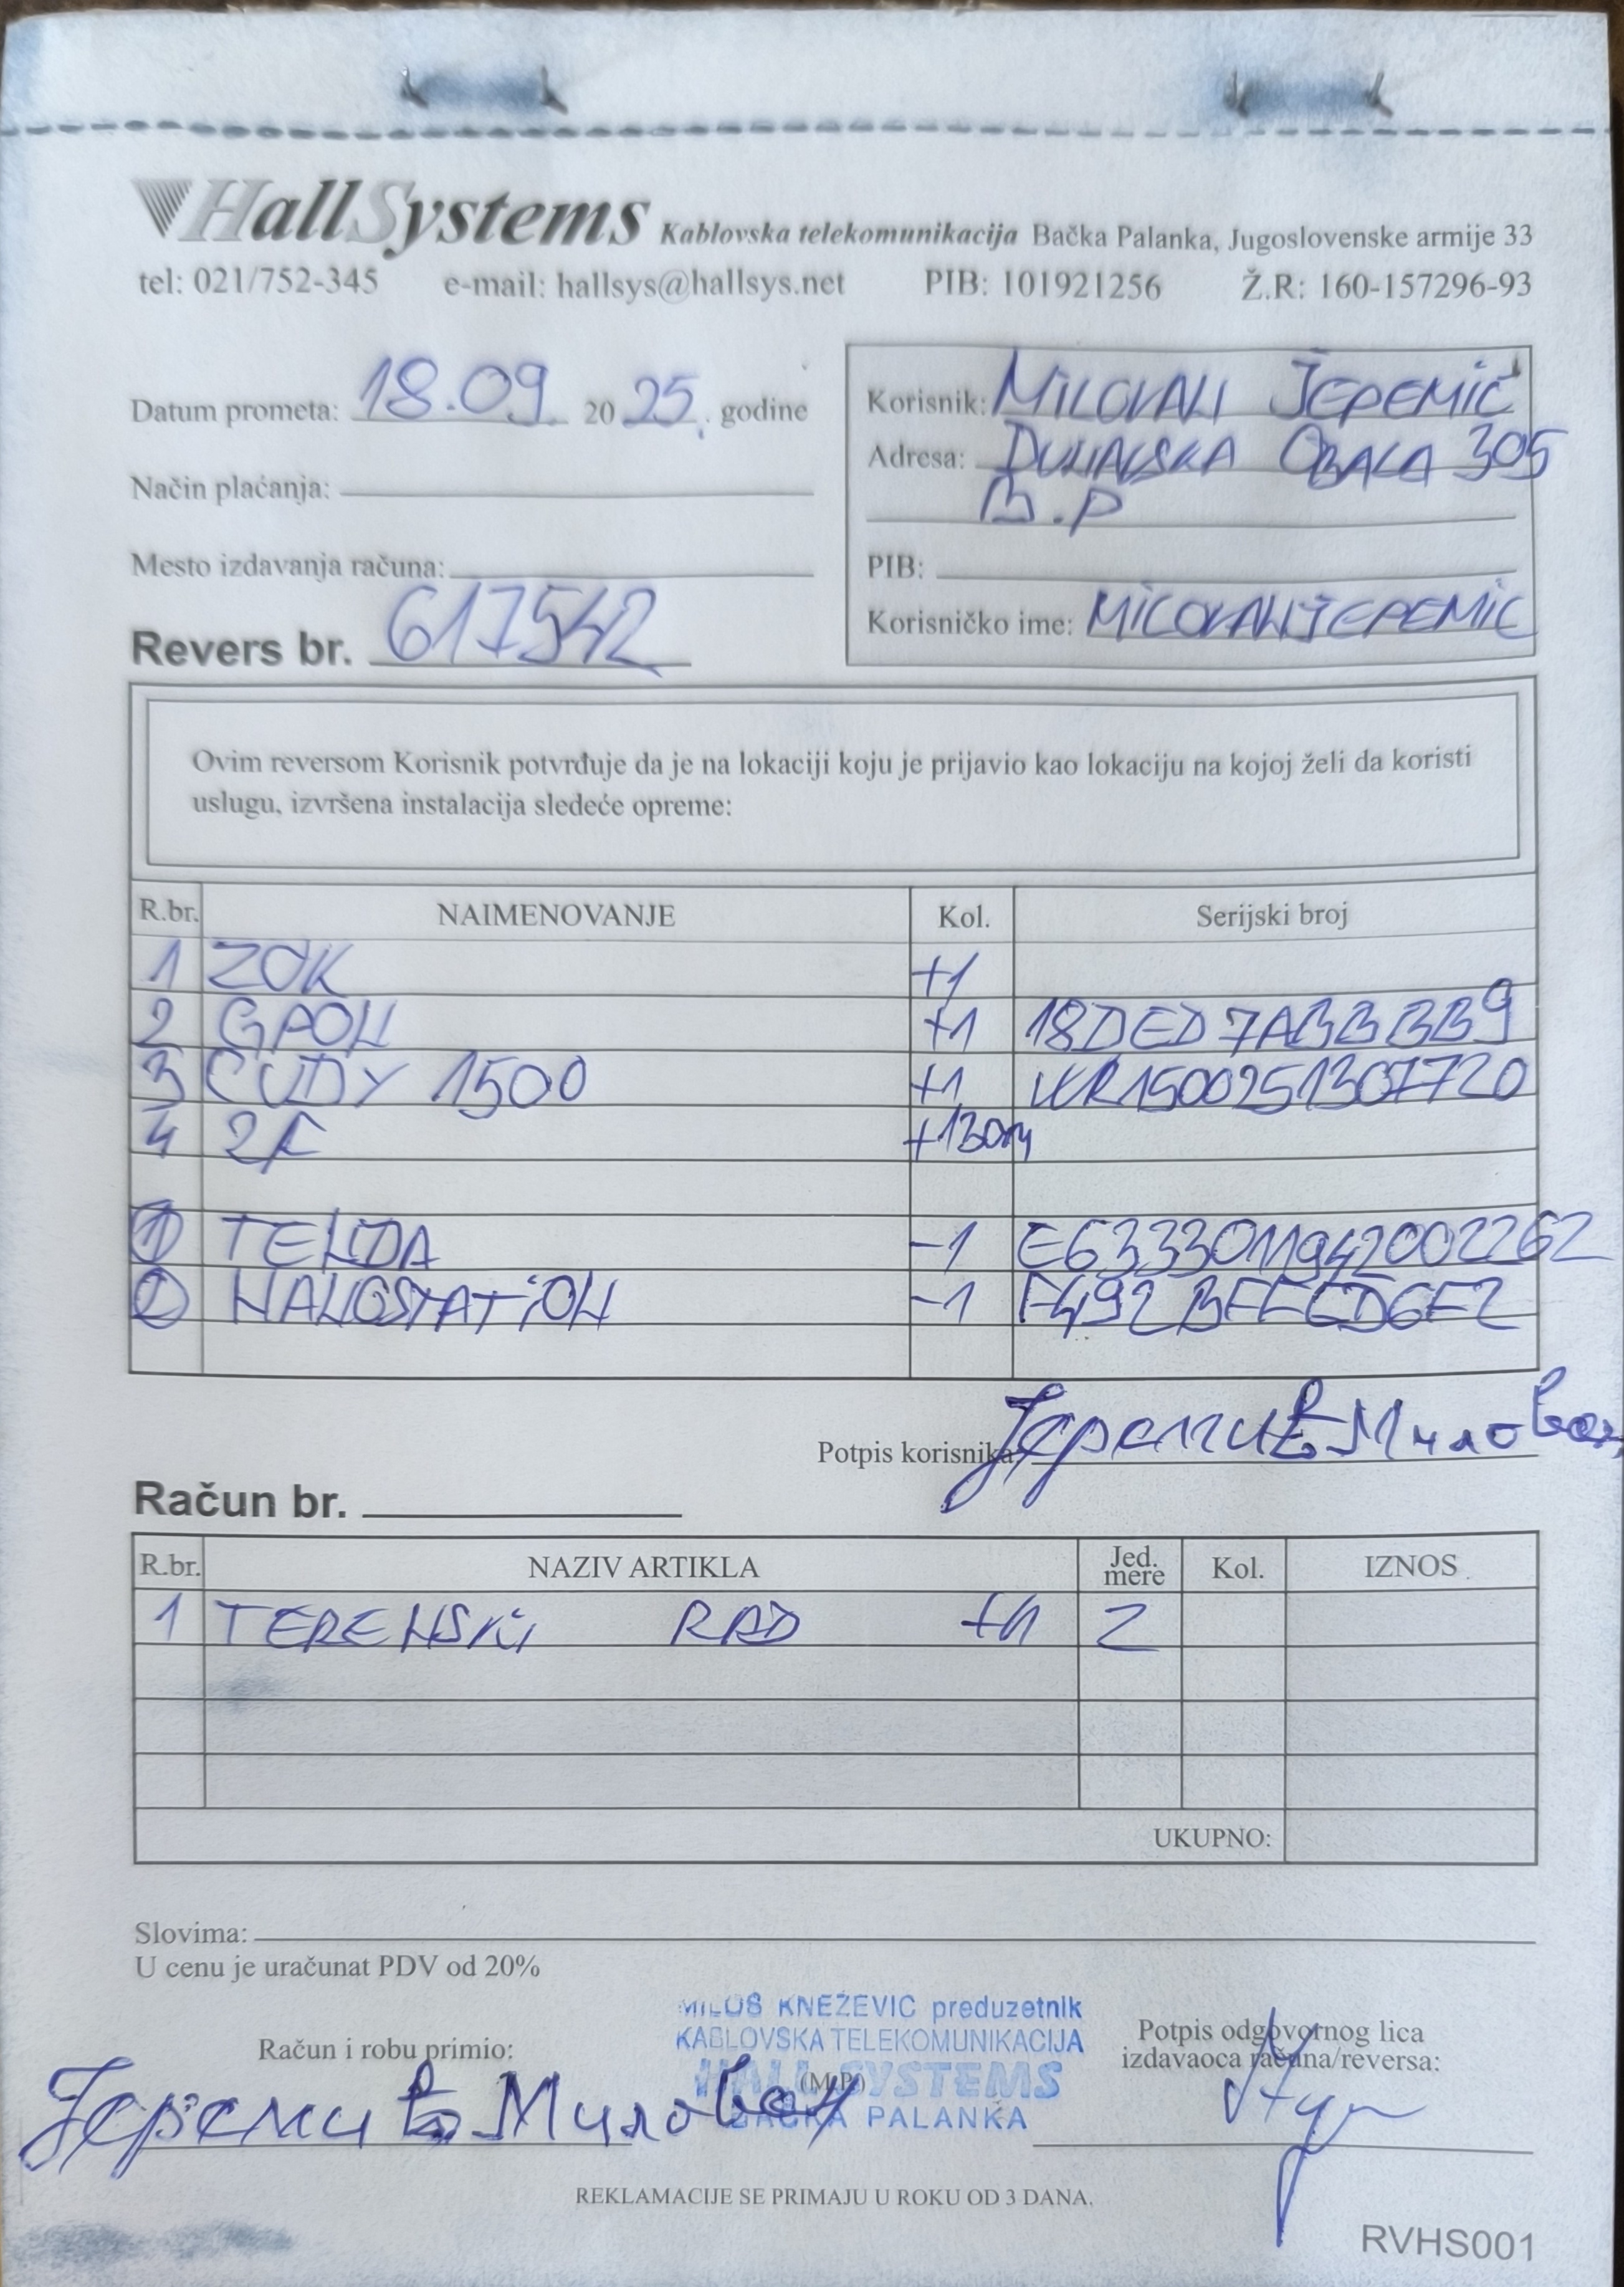 HallSystems Kablovska telekomunikacija Bačka Palanka, Jugoslovenske armije 33
tel: 021/752-345 e-mail: hallsys@hallsys.net PIB: 101921256 Ž.R: 160-157296-93
Datum prometa: 18.09. 2025. godine
Način plaćanja:
Mesto izdavanja računa:
Revers br. 617542
Korisnik: MILOVAN JEREMIĆ
Adresa: DUNAVSKA OBALA 305
B.P
PIB:
Korisničko ime: MILOVANJEREMIC
Ovim reversom Korisnik potvrđuje da je na lokaciji koju je prijavio kao lokaciju na kojoj želi da koristi
uslugu, izvršena instalacija sledeće opreme:
R.br. NAIMENOVANJE Kol. Serijski broj
1 ZOK +1
2 GPON +1 18DED7ABBBB9
3 CUDY 1500 +1 WR1500251307720
4 2F +130m
1 TENDA -1 E6333011942002262
2 NANOSTATiON -1 F492BFFCD6F2
Potpis korisnika Јеремић Милован
Račun br.
R.br. NAZIV ARTIKLA Jed. mere Kol. IZNOS
1 TERENSKi RAD +1 Z
UKUPNO:
Slovima:
U cenu je uračunat PDV od 20%
Račun i robu primio:
Јеремић Милован
MILOŠ KNEŽEVIĆ preduzetnik
KABLOVSKA TELEKOMUNIKACIJA
HALL SYSTEMS
(M.P.)
BAČKA PALANKA
Potpis odgovornog lica
izdavaoca računa/reversa:
REKLAMACIJE SE PRIMAJU U ROKU OD 3 DANA.
RVHS001